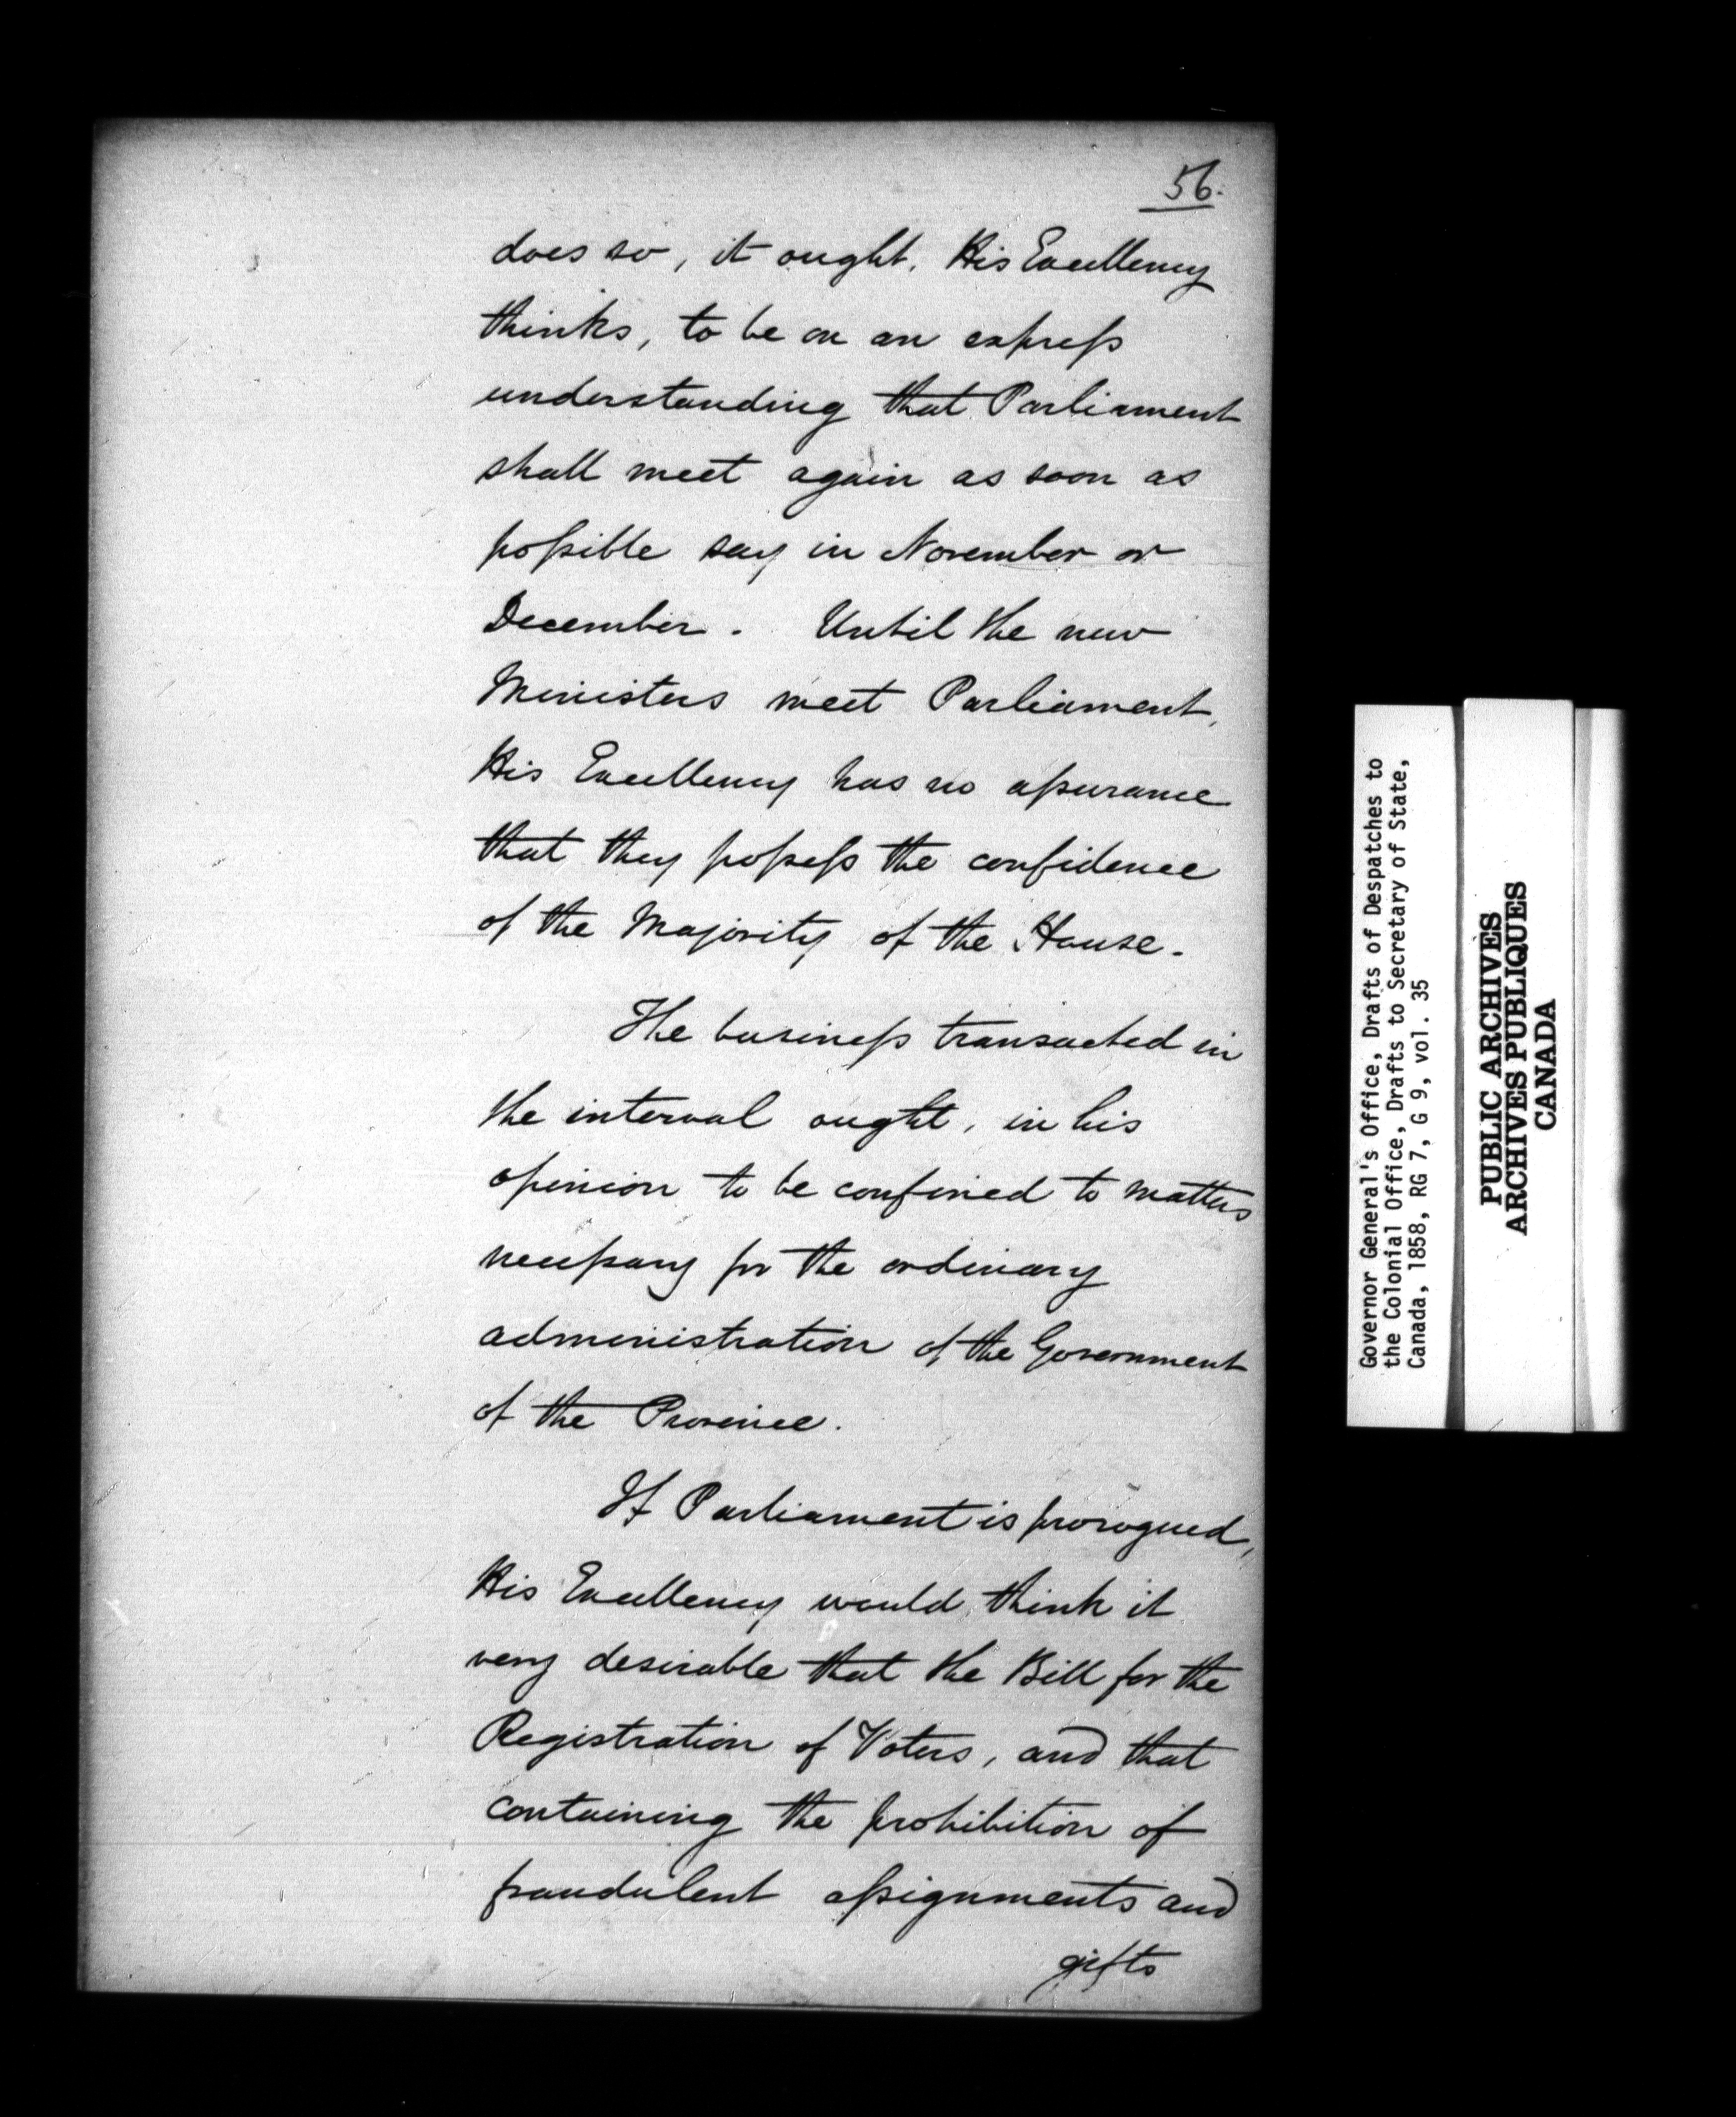 56.
does so, it ought. His Excellency
thinks, to be on an express
understanding that Parliament
shall meet again as soon as
possible say in November or
December. Until the new
Ministers meet Parliament,
His Excellency has no assurance
that they possess the confidence
of the Majority of the House.
The business transacted in
the interval ought, in his
opinion to be confined to matters
necessary for the ordinary
administration of the Government
of the Province.
If Parliament is prorogued,
His Excellency would think it
very desirable that the Bill for the
Registration of Voters, and that
containing the prohibition of
fraudulent assignments and
gifts
Governor General's Office, Drafts of Despatches to
the Colonial Office, Drafts to Secretary of State,
Canada, 1858, RG 7, G 9, vol. 35
PUBLIC ARCHIVES
ARCHIVES PUBLIQUES
CANADA